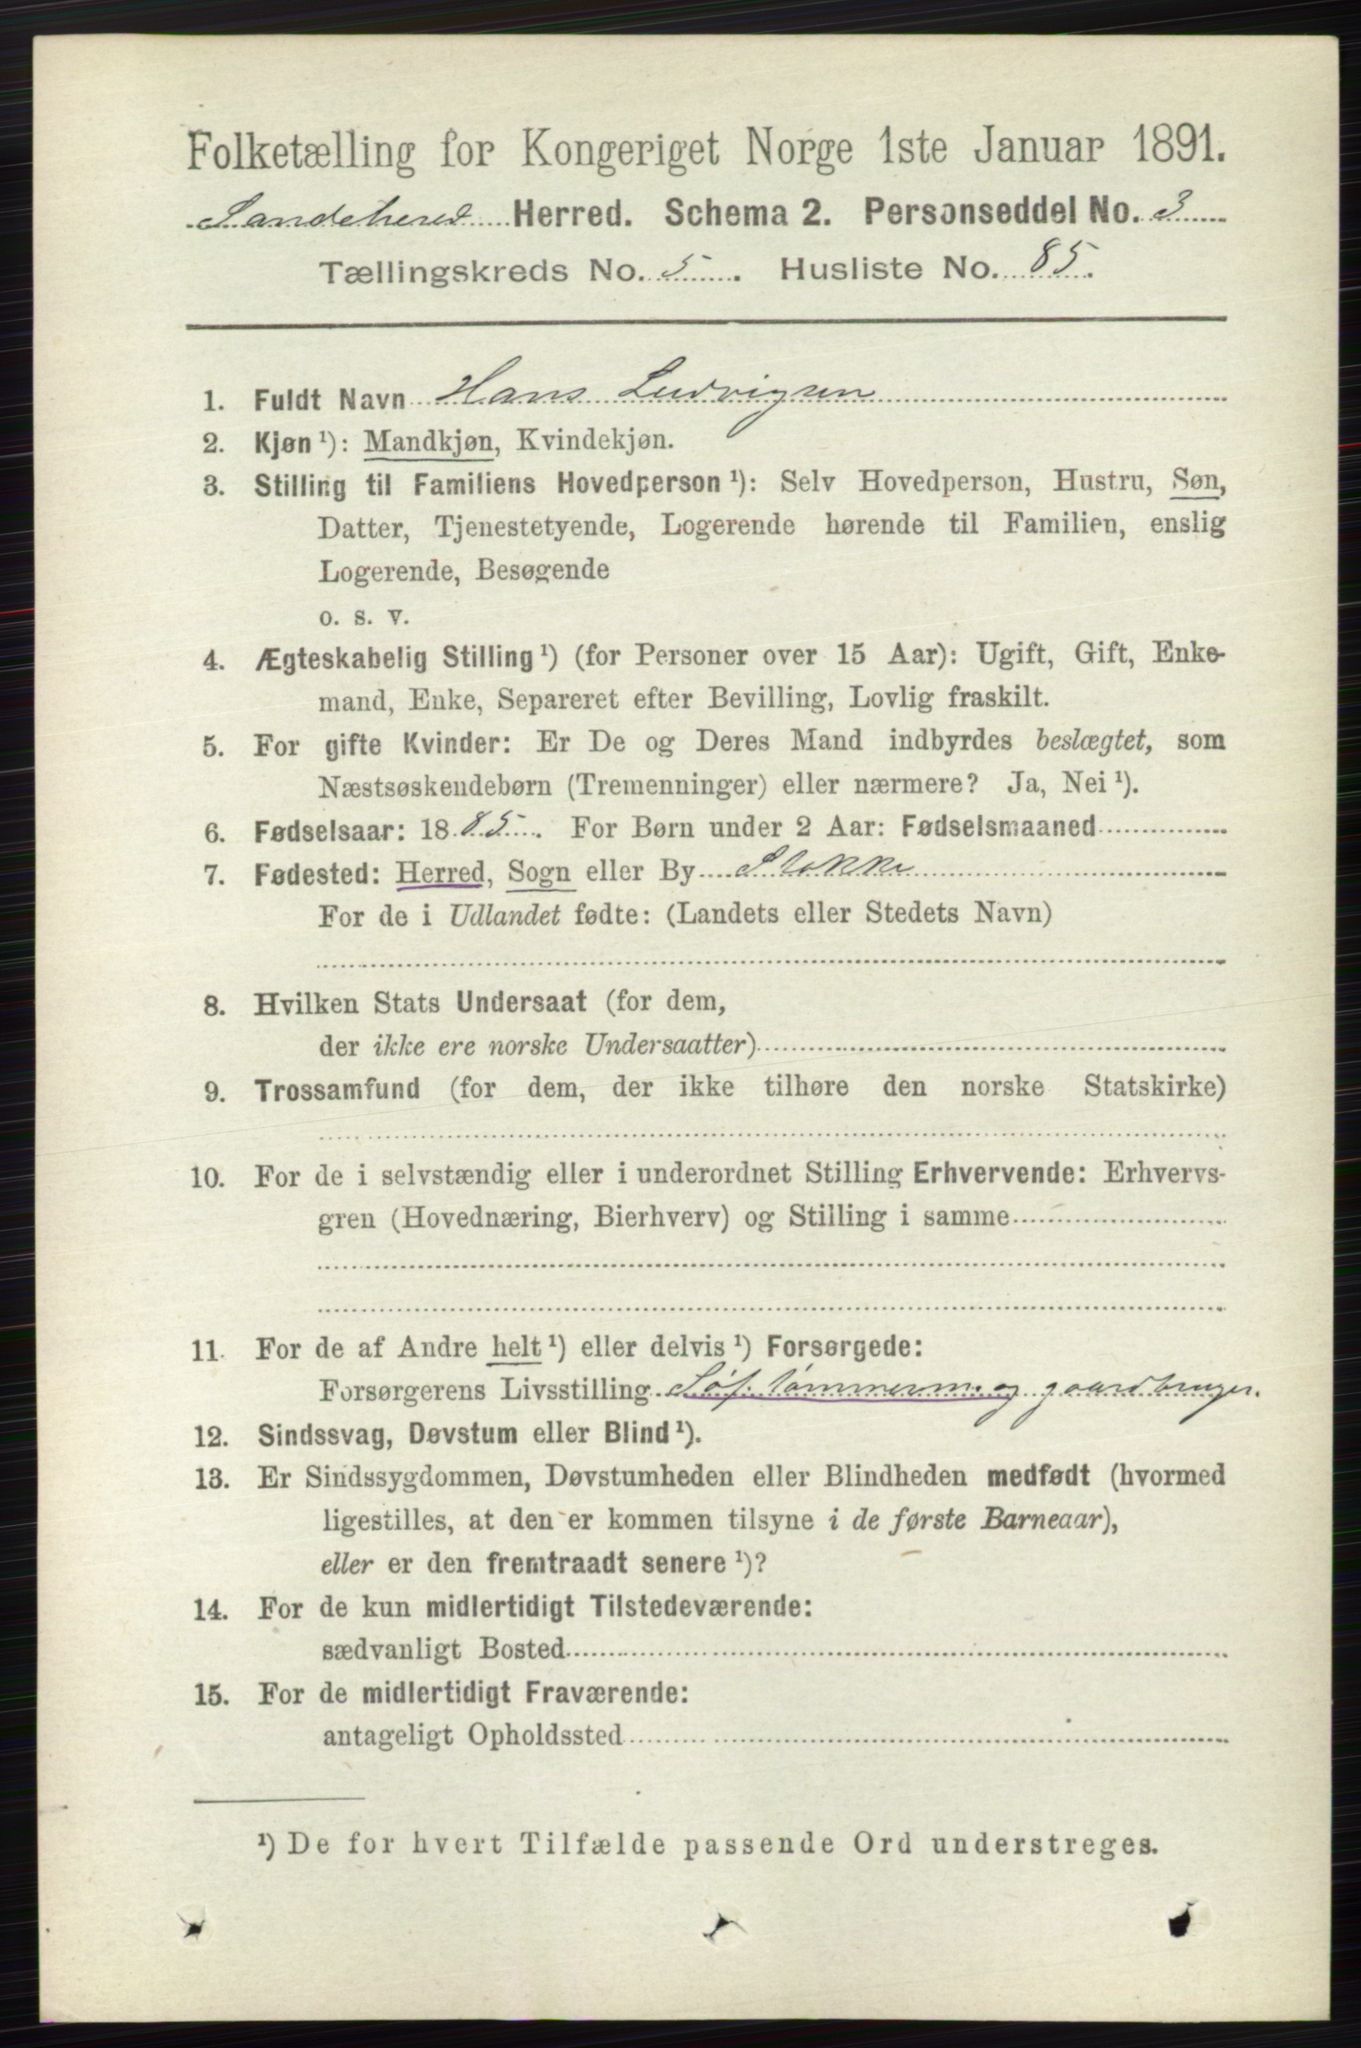 Folketælling for Kongeriget Norge 1ste Januar 1891.
Sandeherred Herred. Schema 2. Personseddel No. 3
Tællingskreds No. 5. Husliste No. 85.
1. Fuldt Navn Hans Ludvigsen
2. Kjøn ¹): Mandkjøn, Kvindekjøn.
3. Stilling til Familiens Hovedperson ¹): Selv Hovedperson, Hustru, Søn,
Datter, Tjenestetyende, Logerende hørende til Familien, enslig
Logerende, Besøgende
o. s. v.
4. Ægteskabelig Stilling ¹) (for Personer over 15 Aar): Ugift, Gift, Enke-
mand, Enke, Separeret efter Bevilling, Lovlig fraskilt.
5. For gifte Kvinder: Er De og Deres Mand indbyrdes beslægtet, som
Næstsøskendebørn (Tremenninger) eller nærmere? Ja, Nei ¹).
6. Fødselsaar: 1885. For Børn under 2 Aar: Fødselsmaaned
7. Fødested: Herred, Sogn eller By Stokke
For de i Udlandet fødte: (Landets eller Stedets Navn)
8. Hvilken Stats Undersaat (for dem,
der ikke ere norske Undersaatter)
9. Trossamfund (for dem, der ikke tilhøre den norske Statskirke)
10. For de i selvstændig eller i underordnet Stilling Erhvervende: Erhvervs-
gren (Hovednæring, Bierhverv) og Stilling i samme
11. For de af Andre helt ¹) eller delvis ¹) Forsørgede:
Forsørgerens Livsstilling Søf. tømmerm. og gaardbruger.
12. Sindssvag, Døvstum eller Blind ¹).
13. Er Sindssygdommen, Døvstumheden eller Blindheden medfødt (hvormed
ligestilles, at den er kommen tilsyne i de første Barneaar),
eller er den fremtraadt senere ¹)?
14. For de kun midlertidigt Tilstedeværende:
sædvanligt Bosted
15. For de midlertidigt Fraværende:
antageligt Opholdssted
¹) De for hvert Tilfælde passende Ord understreges.